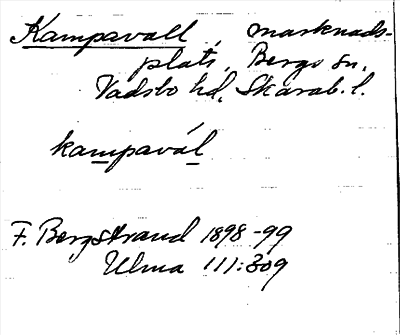 Kampavall, marknads-
plats, Bergs sn,
Vadsbo hd, Skarab. l.
kampavál
F. Bergstrand 1898-99
Ulma 111:309